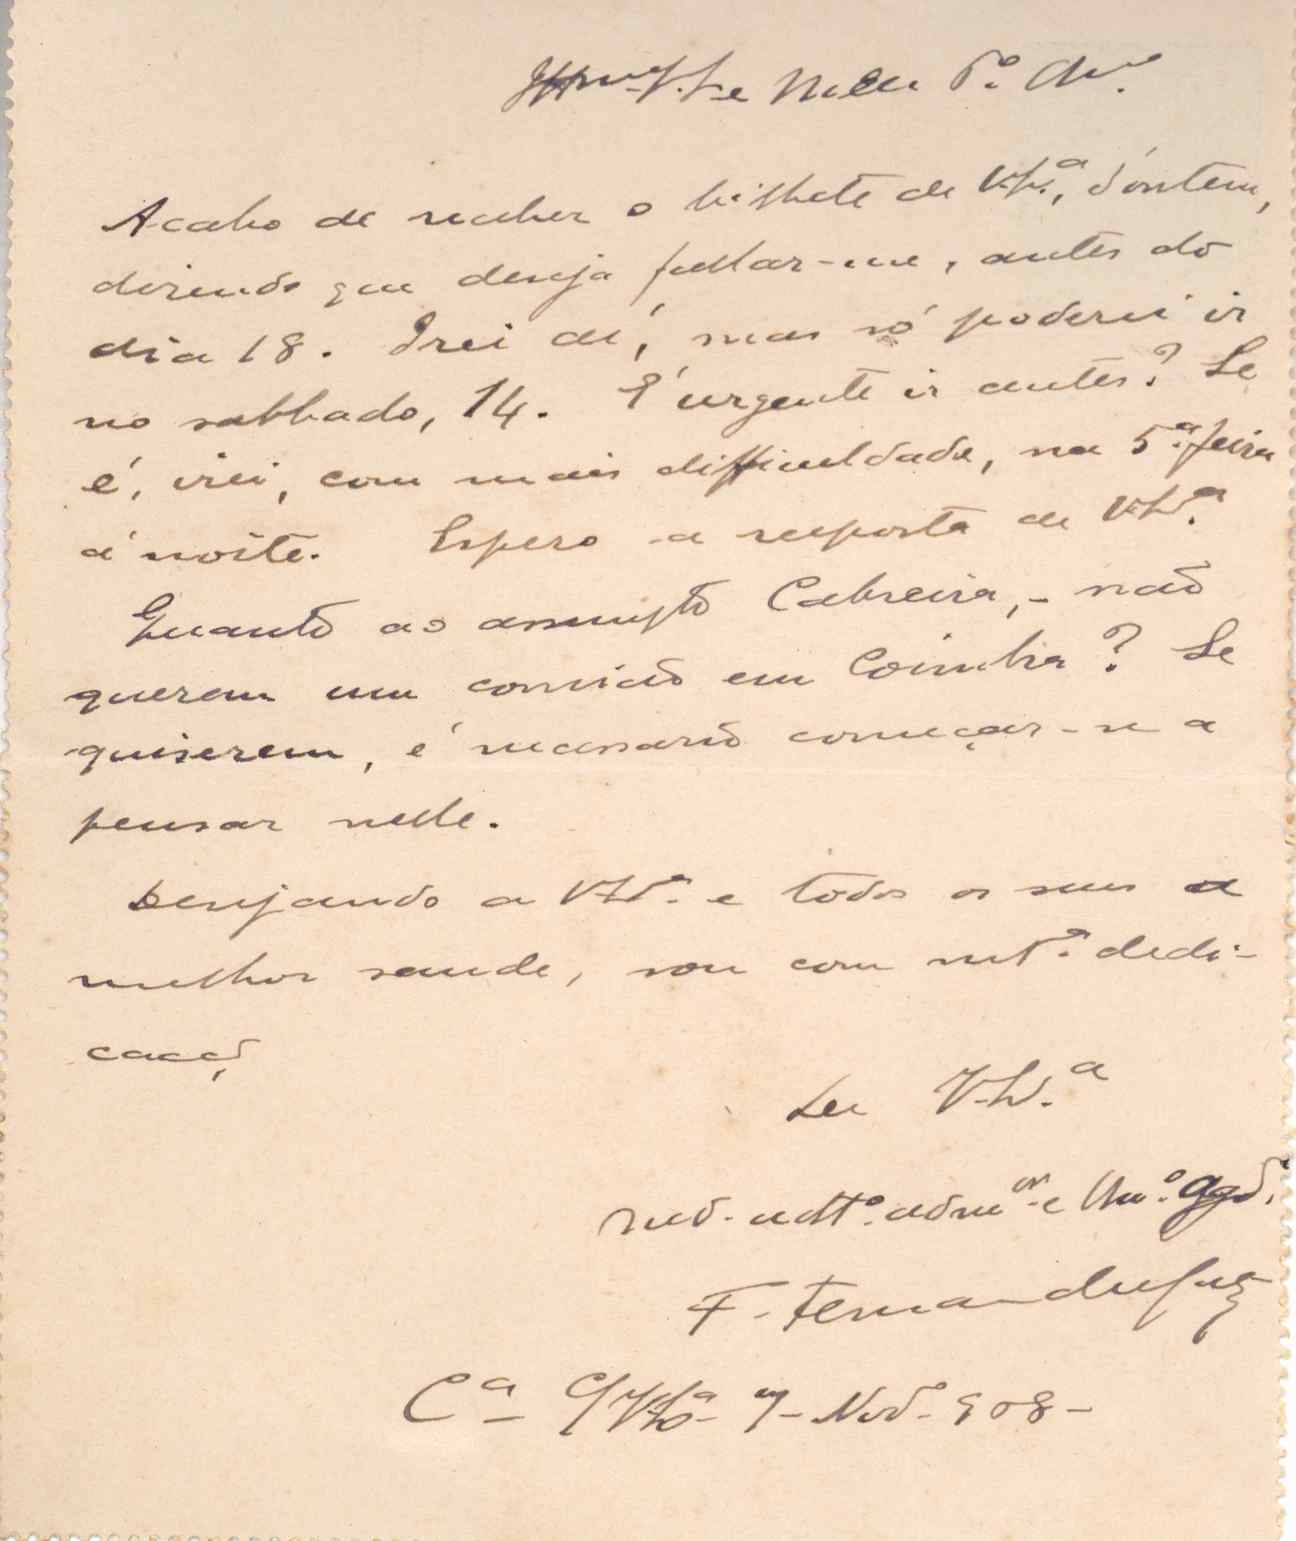 e Meu P.º Am.º
Acabo de receber o bilhete de V. Ex.ª, d'ontem,
dizendo que deseja fallar-me, antes do
dia 18. Irei ahi, mas só poderei ir
no sabbado, 14. É urgente ir antes? Se
é, irei, com mais difficuldade, na 5.ª feira
á noite. Espero a resposta de V. Ex.ª
Quanto ao assumpto Cabreira, - não
querem um comicio em Coimbra? Se
quiserem, é necessario começar-se a
pensar nelle.
Desejando a V. Ex.ª e todos os seus a
melhor saude, sou com mt.ª dedi-
cação
De V. Ex.ª
att.º adm.or e Am.º
F. Fernandes
C.ª 7 - Nov.º - 908 -